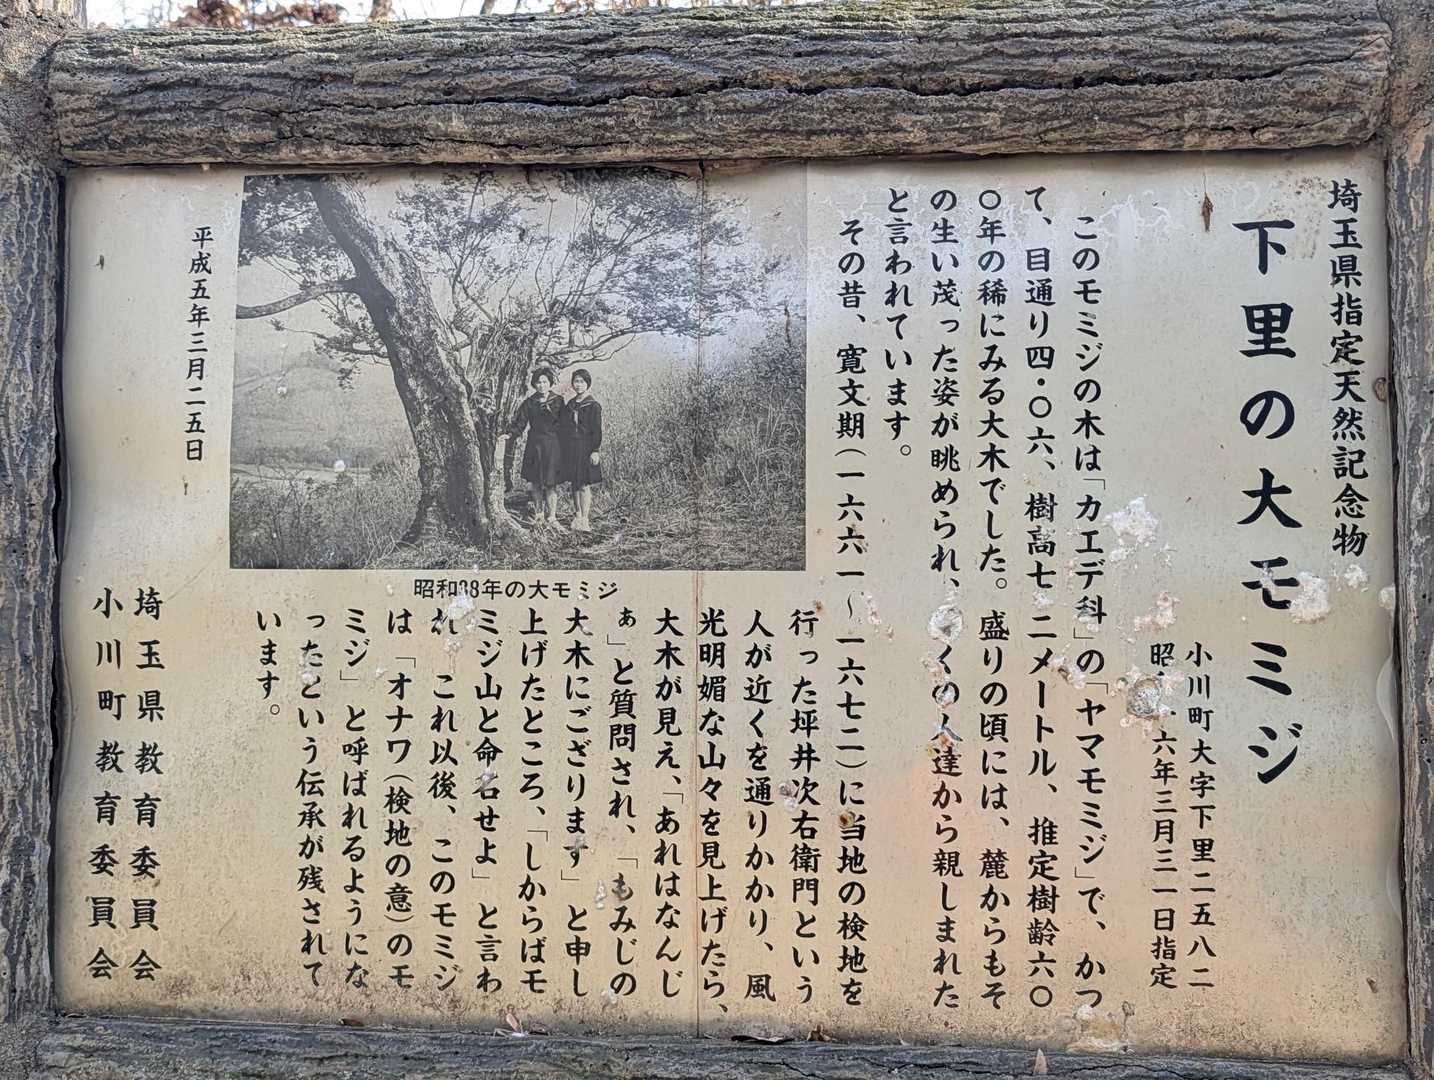 埼玉県指定天然記念物
下里の大モミジ
小川町大字下里二五八二
昭 六年三月三一日指定
このモミジの木は「カエデ科」の「ヤマモミジ」で、かつ
て、目通り四・〇六、樹高七・二メートル、推定樹齢六〇
〇年の稀にみる大木でした。盛りの頃には、麓からもそ
の生い茂った姿が眺められ、 くの人達から親しまれた
と言われています。
その昔、寛文期(一六六一～一六七二)に当地の検地を
行った坪井次右衛門という
人が近くを通りかかり、風
光明媚な山々を見上げたら、
大木が見え、「あれはなんじ
ぁ」と質問され、「もみじの
大木にござります」と申し
上げたところ、「しからばモ
ミジ山と命名せよ」と言わ
れ、これ以後、このモミジ
は「オナワ(検地の意)のモ
ミジ」と呼ばれるようにな
ったという伝承が残されて
います。
昭和38年の大モミジ
平成五年三月二五日
埼玉県教育委員会
小川町教育委員会